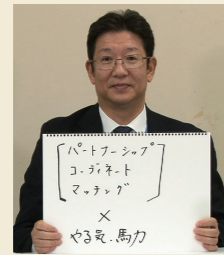 パートナーシップ
コーディネート
マッチング
×
やる気・馬力